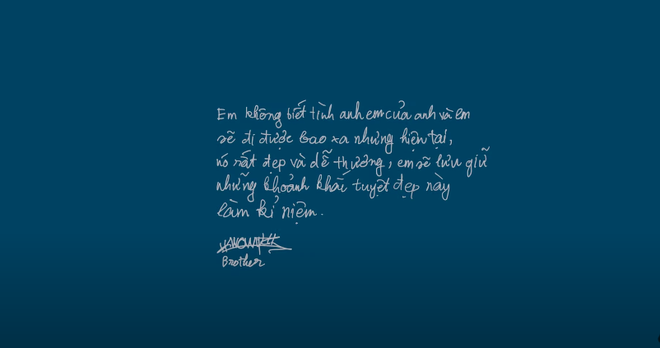 Em không biết tình anh em của anh và em
sẽ đi được bao xa nhưng hiện tại,
nó rất đẹp và dễ thương, em sẽ lưu giữ
những khoảnh khắc tuyệt đẹp này
làm kỉ niệm.
Brother